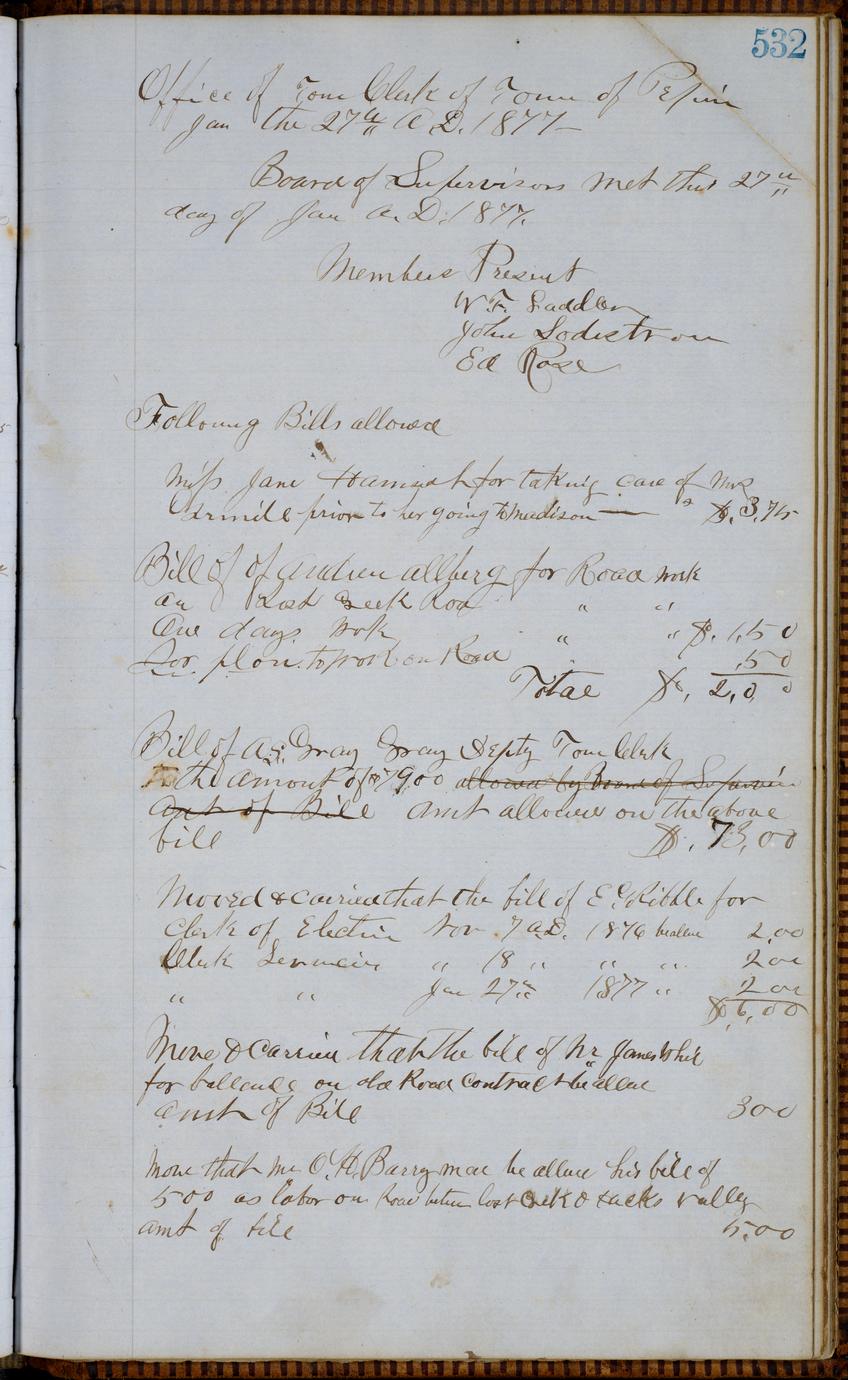 532
Office of Town Clerk of Town of Pepin
Jan the 27th A.D. 1877
Board of Supervisors met this 27th
day of Jan A.D. 1877.
Members Present
W. F. Saddler
John Lodestrom
Ed Rose
Following Bills allowed
Miss Jane for taking care of Mrs
prior to her going to Madison — $.3,75
Bill of of Andrew Allberg for Road work
on Lost Creek Road " "
One days work " " $.1,50
For plow to work on Road ,50
Total $. 2,00
Bill of A. S. Gray Gray Depty Town Clerk
To the amount of $79.00 allowed by Board of Supervin
amt of Bill amt allowed on the above
bill $. 73,00
Moved & carried that the bill of E. Ribble for
Clerk of Election Nov. 7 A.D. 1876 be allow 2,00
Clerk " 18 " " " 200
" " Jan 27th 1877 " 200
$6,00
Move & Carried that the bill of Mr James White
for ballance on old Road contract be allow
amt of Bill 300
move that Mr O. H. Barry mae be allow his bill of
500 as labor on Road betwen lost Creek & sacks valley
amt of bill 5.00